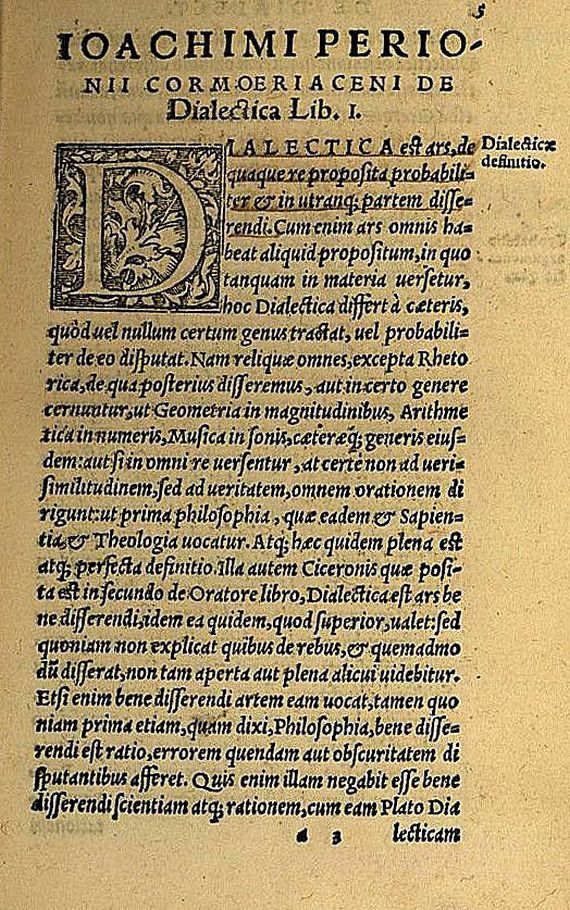 5
IOACHIMI PERIO-
NII CORMOERIACENI DE
Dialectica Lib. I.
DIALECTICA est ars, de
quaque re proposita probabili-
ter & in utranq; partem disse-
rendi. Cum enim ars omnis ha-
beat aliquid propositum, in quo
tanquam in materia uersetur,
hoc Dialectica differt à cæteris,
quòd uel nullum certum genus tractat, uel probabili-
ter de eo disputat. Nam reliquæ omnes, excepta Rheto
rica, de qua posterius disseremus, aut in certo genere
cernuntur, ut Geometria in magnitudinibus, Arithme
tica in numeris, Musica in sonis, cæteræq; generis eius-
dem: aut si in omni re uersentur, at certe non ad ueri-
similitudinem, sed ad ueritatem, omnem orationem di
rigunt: ut prima philosophia, quæ eadem & Sapien-
tia, & Theologia uocatur. Atq; hæc quidem plena est
atq; perfecta definitio. Illa autem Ciceronis quæ posi-
ta est in secundo de Oratore libro, Dialectica est ars be
ne disserendi, idem ea quidem, quod superior, ualet: sed
quoniam non explicat quibus de rebus, & quemadmo
dũ disserat, non tam aperta aut plena alicui uidebitur.
Etsi enim bene disserendi artem eam uocat, tamen quo
niam prima etiam, quam dixi, Philosophia, bene disse-
rendi est ratio, errorem quendam aut obscuritatem di
sputantibus afferet. Quis enim illam negabit esse bene
disserendi scientiam atq; rationem, cum eam Plato Dia
a 3 lecticam
Dialecticæ
definitio.